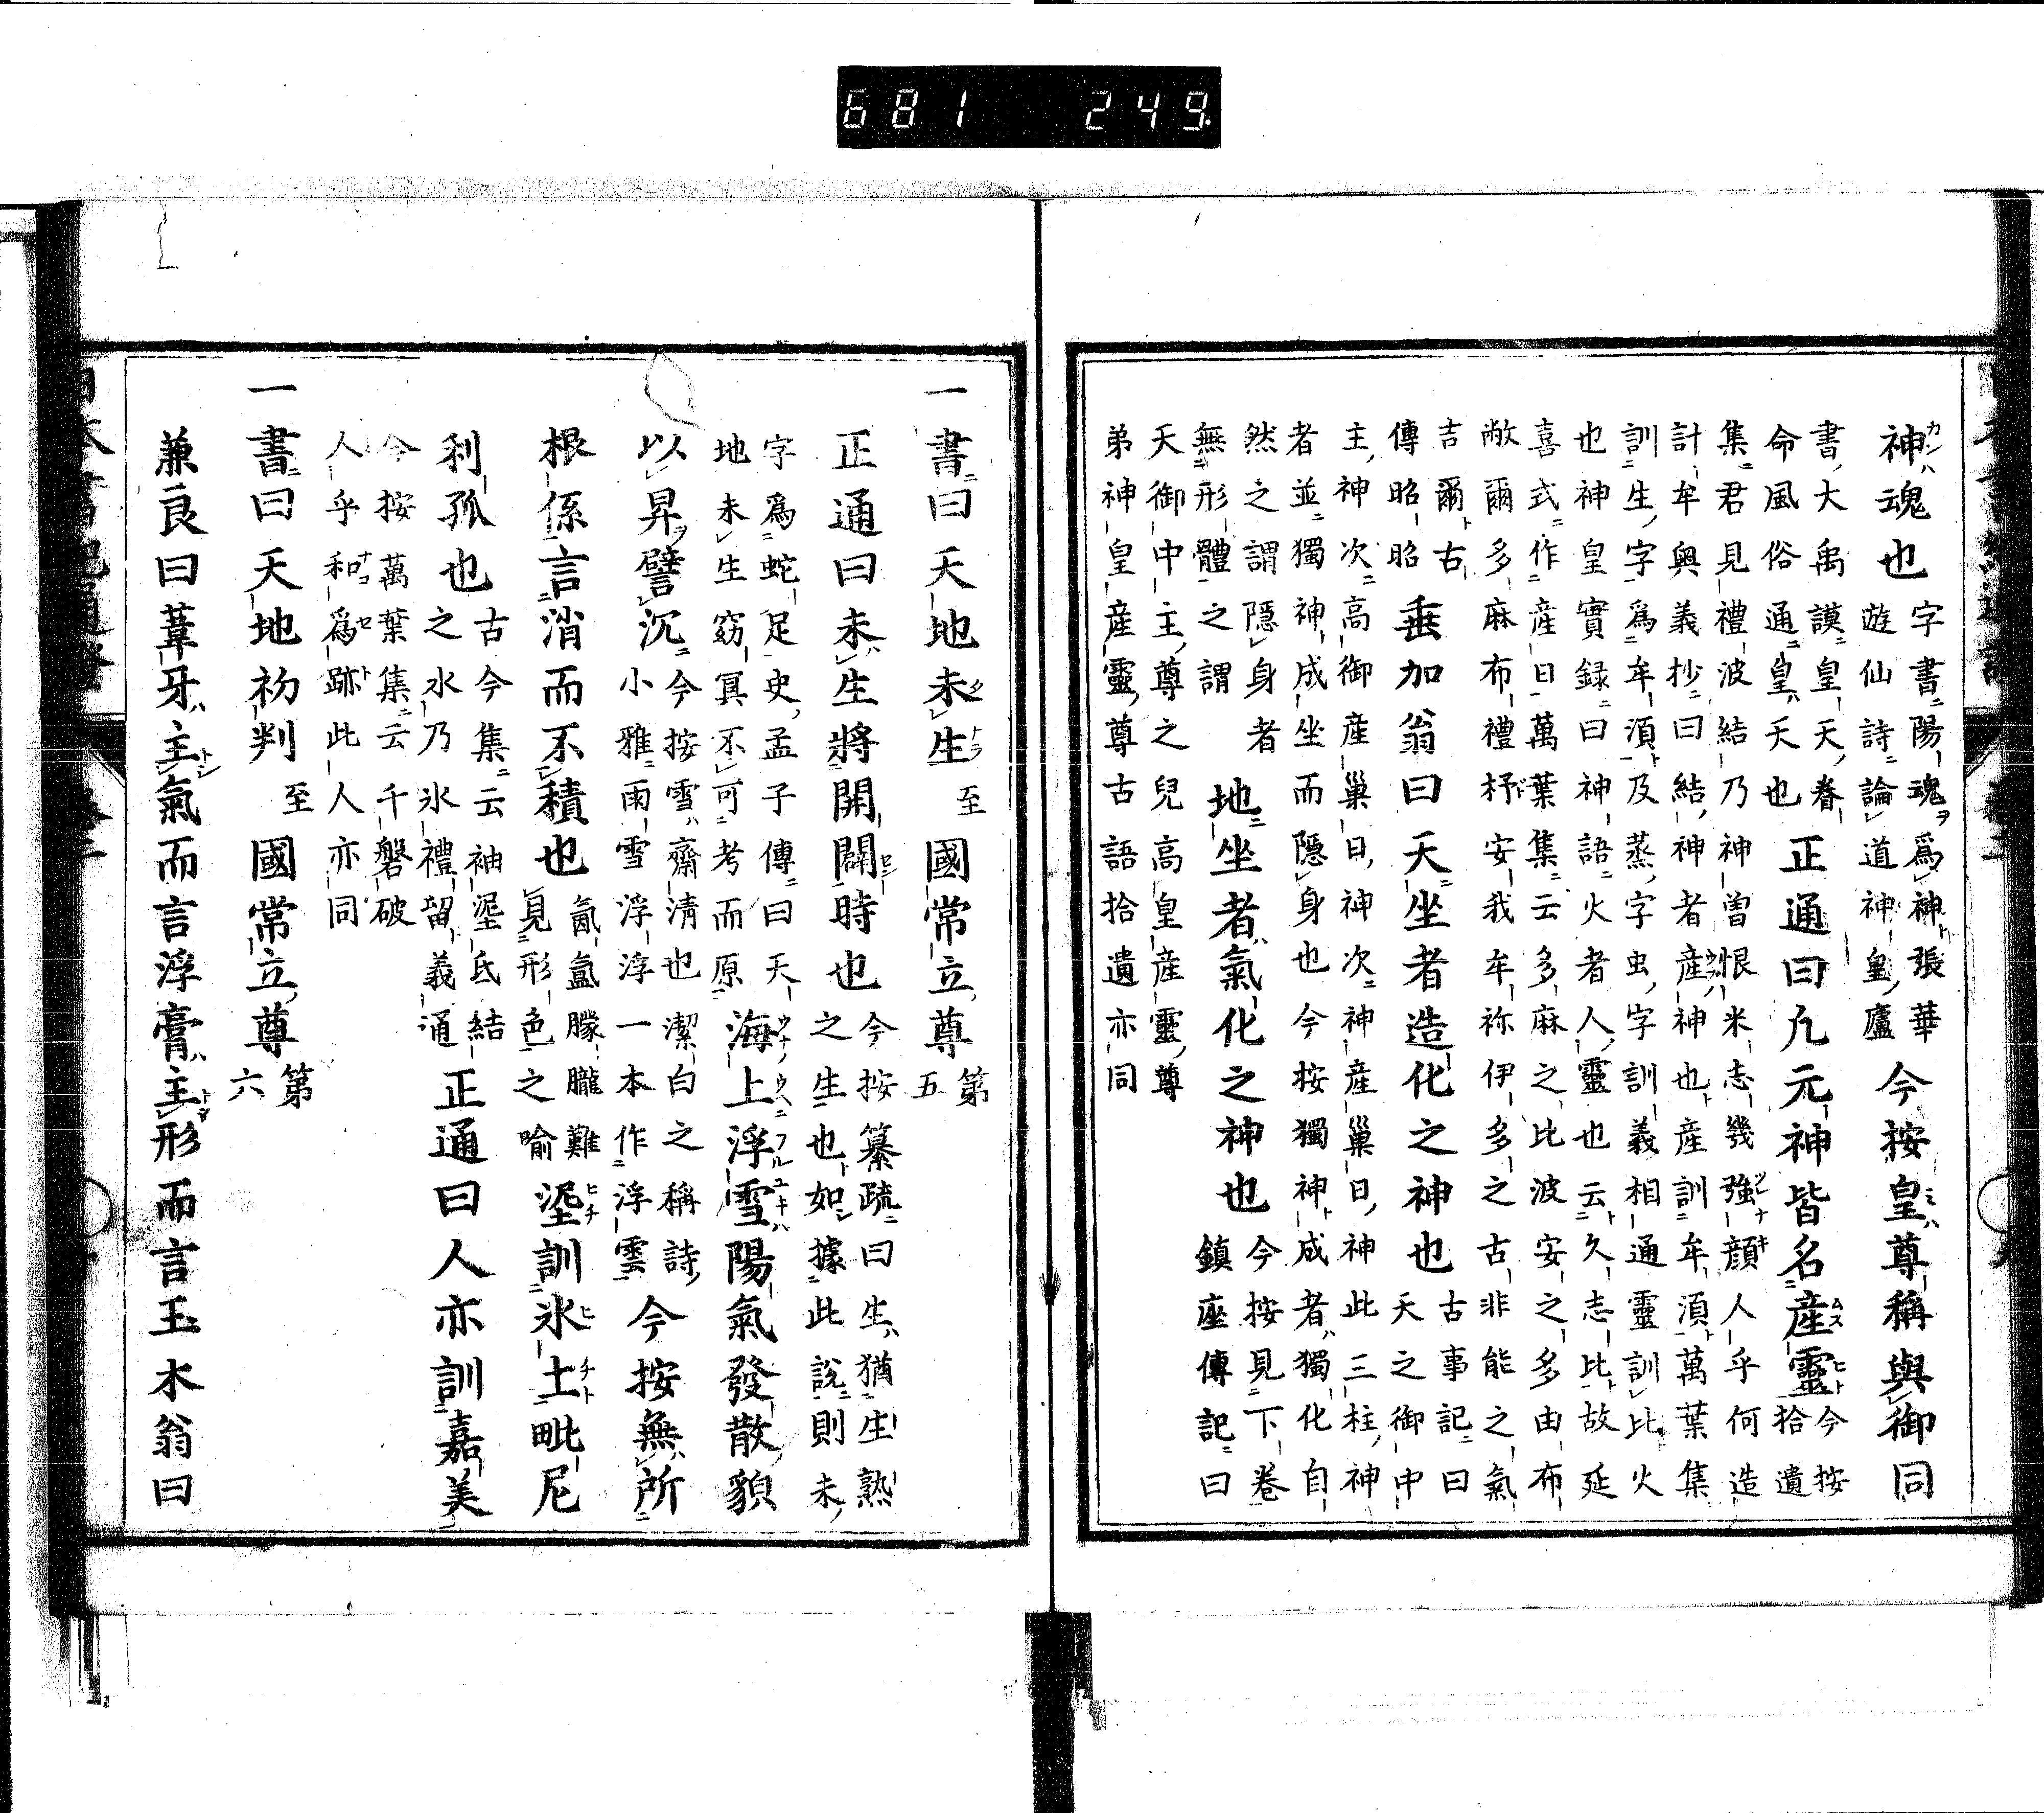 681 249
神魂也
字書陽魂爲神張華
遊仙詩論道神皇廬
今按皇尊稱與御同
書大禹謨皇天眷
命風俗通皇天也
正通曰凡元神皆名産靈
今按
拾遺
集君見禮波結乃神曽恨米志幾強顔人乎何造
計牟與義抄曰結神者産神也産訓牟湏萬葉集
訓生字爲牟湏及蒸字虫字訓義相通靈訓比火
也神皇實録曰神語火者人靈也云久志比故延
喜式作産日萬葉集云多麻之比波安之多由布
敝爾多麻布禮杼安我牟祢伊多之古非能之氣
吉爾古
傳昭昭
垂加翁曰天坐者造化之神也
古事記曰
天之御中
主神次高御産巢日神次神産巢日神此三柱神
者並獨神成坐而隱身也今按獨神成者獨化自
然之謂隱身者
無形體之謂
地坐者氣化之神也
今按見下卷
鎮座傳記曰
天御中主尊之兒高皇産靈尊
弟神皇産靈尊古語拾遺亦同
一書曰天地未生至國常立尊
第五
正通曰未生將開闢時也
今按纂疏曰生猶生熟
之生也如據此說則未
字爲蛇足史孟子傳曰天
地未生窈冥不可考而原
海上浮雪陽氣發散貌
以昇譬沉
今按雪齋清也潔白之稱詩
小雅雨雪浮浮一本作浮雲
今按無所
根係言消而不積也
氤氳朦朧難
見形色之喻
埿訓氷土毗尼
利孤也
古今集云袖埿氐結
之水乃氷禮留義通
正通曰人亦訓嘉美
今按萬葉集云千磐破
人乎和爲跡此人亦同
一書曰天地初判至國常立尊
第六
兼良曰葦牙主氣而言浮膏主形而言玉木翁曰